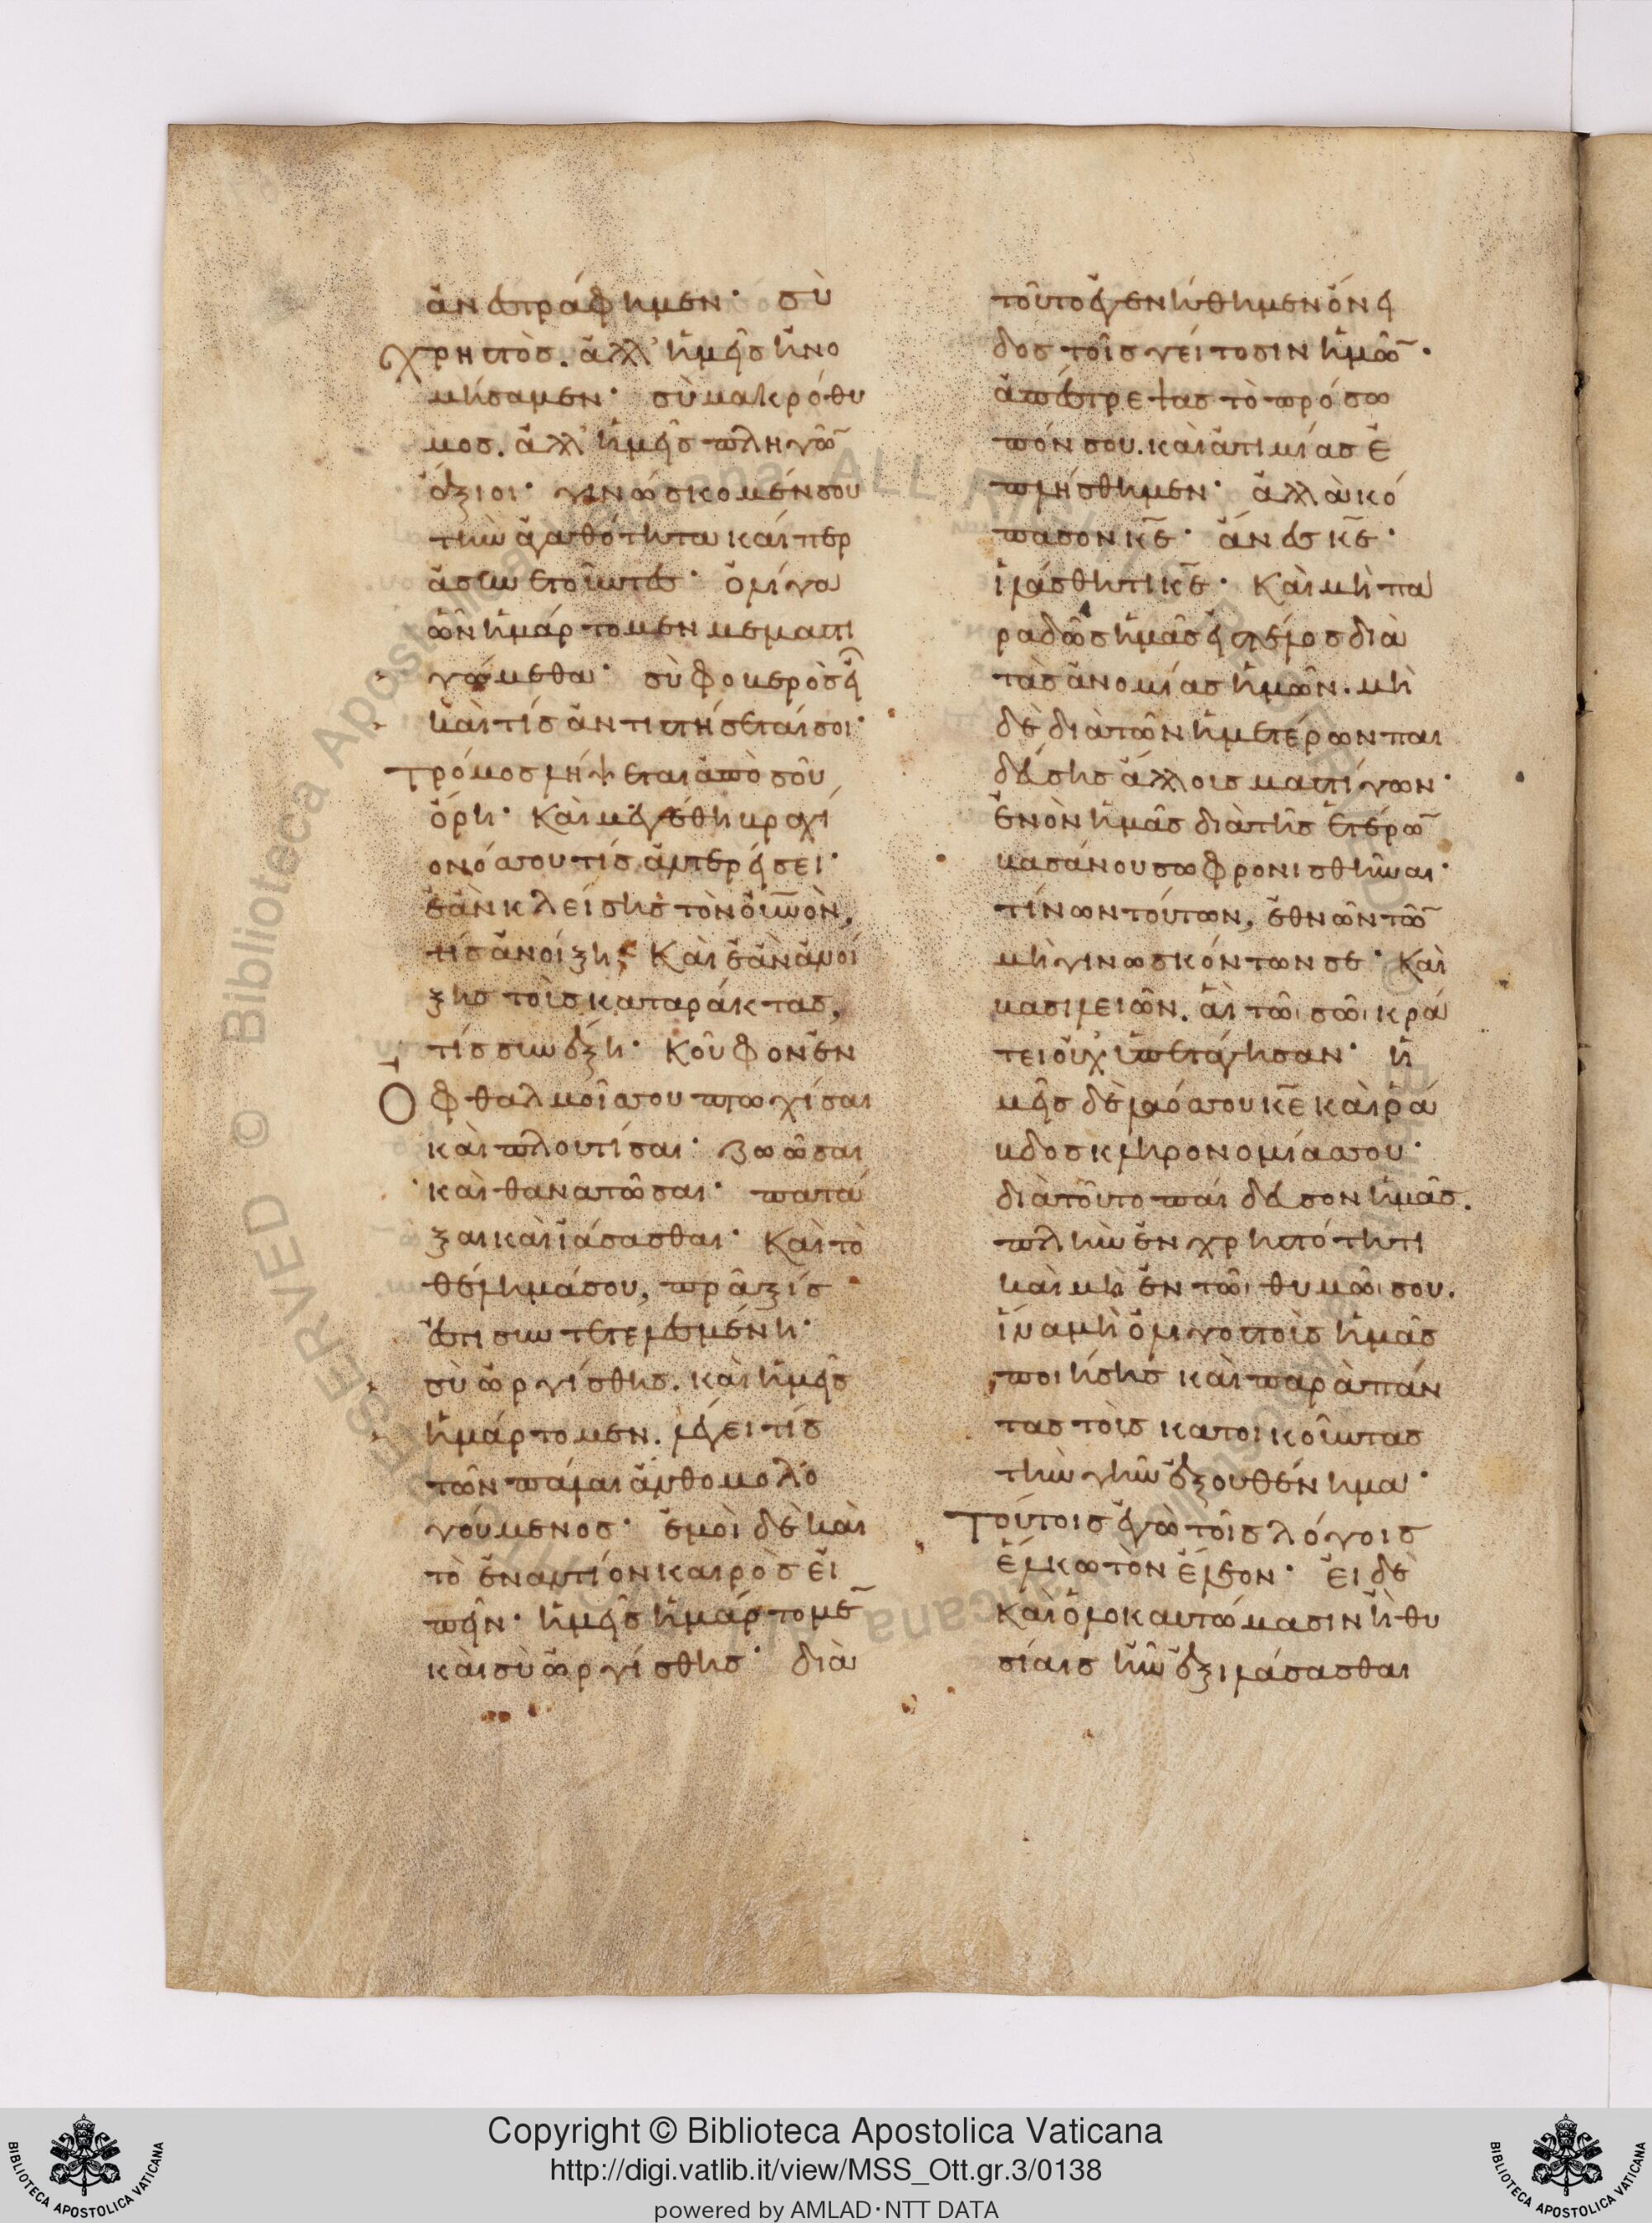 ἀνεστράφημεν· σὺ
χρηστὸς. ἀλλ' ἡμεῖς ἠνο
μήσαμεν· σὺ μακρόθυ
μος. ἀλλ' ἡμεῖς πληγῶ̄
ἄξιοι· γινώσκομέν σου
τὴν ἀγαθότητα καίπερ
ἀσύνετοι ὄντες· ὀλίγα
ὧν ἡμάρτομεν μεμαστι
γώμεθα· σὺ φοβερὸς εἶ
καὶ τίς ἀντιστήσεταί σοι·
τρόμος λήψεται ἀπὸ σοῦ
ὄρη· καὶ μεγέθη βραχί
ονός σου τίς ἀντερεῖ σει·
ἐὰν κλείσῃς τὸν οὐ̄νον,
τίς ἀνοίξῃ; Καὶ ἐὰν ἀνοί
ξῃς τοὺς καταράκτας,
τίς συνέξῃ· Κοῦφον ἐν
Ὀφθαλμοῖς σου πτωχίσαι
καὶ πλουτίσαι· ζωῶσαι
καὶ θανατῶσαι· πατά
ξαι καὶ ἰάσασθαι· Καὶ τὸ
θέλημά σου, πρᾶξίς
ἐστι συντετελεσμένη·
σὺ ὠργίσθης. καὶ ἡμεῖς
ἡμάρτομεν. λέγει τίς
τῶν πάλαι ἀνθομολο
γούμενος· ἐμοὶ δὲ καὶ
τὸ ἐναντίον καιρὸς εἰ
πεῖν· ἡμεῖς ἡμάρτομε̄
καὶ σὺ ὠργίσθης· διὰ
τοῦτο ἐγενήθημεν ὄνει
δος τοῖς γείτοσιν ἡμῶ̄·
ἀπέστρεψας τὸ πρόσω
πόν σου. καὶ ἀτιμίας ἐ
πλήσθημεν· ἀλλὰ κό
πασον κ̄ε· ἄνες κ̄ε·
ἱλάσθητι κ̄ε· Καὶ μὴ πα
ραδῶς ἡμᾶς εἰς τέλος διὰ
τὰς ἀνομίας ἡμῶν. μη
δὲ διὰ τῶν ἡμετέρων παι
δεύσῃς ἄλλοις μαστίγων·
ἐνὸν ἡμᾶς διὰ τῆς ἑτέρω̄
βασάνου σωφρονισθῆναι·
τίνων τούτων, ἐθνῶν τῶ̄
μὴ γινωσκόντων σε· Καὶ
βασιλειῶν. αἳ τῶι σῶι κρά
τει οὐχ ὑπετάγησαν· ἡ
μεῖς δὲ λαός σου κ̄ε καὶ ῥά
βδος κληρονομίας σου·
διὰ τοῦτο παίδευσον ἡμᾶς.
πλὴν ἐν χρηστότητι
καὶ μὴ ἐν τῶι θυμῶι σου.
ἵνα μὴ ὀλιγοστοὺς ἡμᾶς
ποιήσῃς καὶ παρὰ πάν
τας τοὺς κατοικοῦντας
τὴν γῆν ἐξουθένημα·
Τούτοις ἐγὼ τοῖς λόγοις
ἕλκω τὸν ἔλεον· εἰ δὲ
καὶ ὁλοκαυτώμασιν ἢ θυ
σίαις ἦν ἐξιλάσασθαι
Copyright © Biblioteca Apostolica Vaticana
http://digi.vatlib.it/view/MSS_Ott.gr.3/0138
powered by AMLAD·NTT DATA